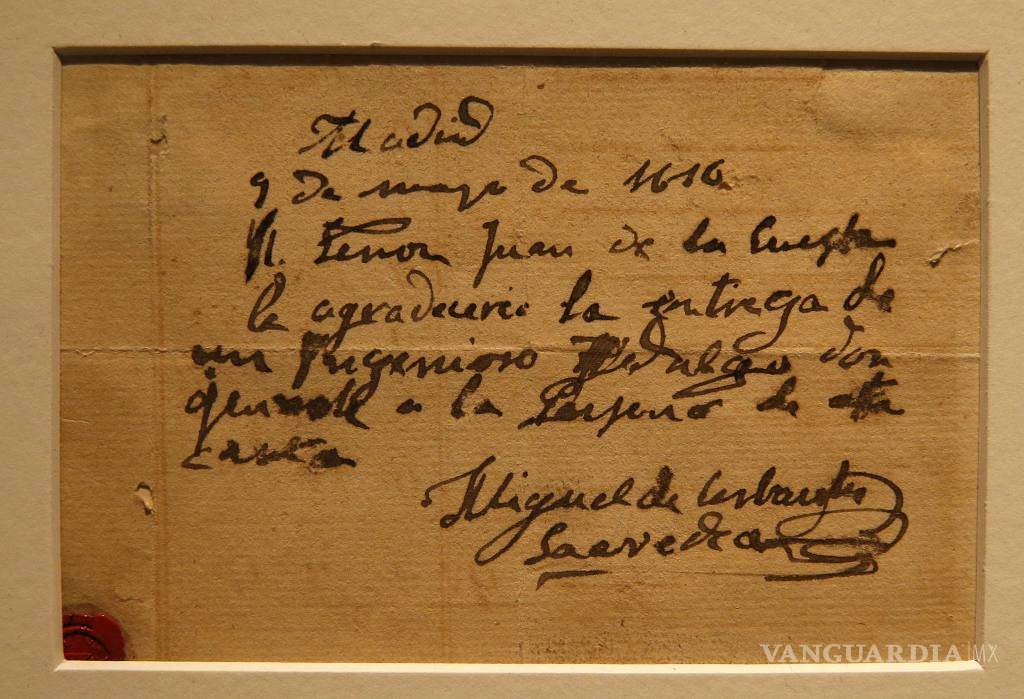 Madrid
9 de mayo de 1616
Sr. Señor Juan de la Cuesta
le agradecere la entrega de
un Ingenioso Hidalgo don
quixote a la Persona de esta
carta
Miguel de Cerbantes
Saavedra
VANGUARDIA|MX